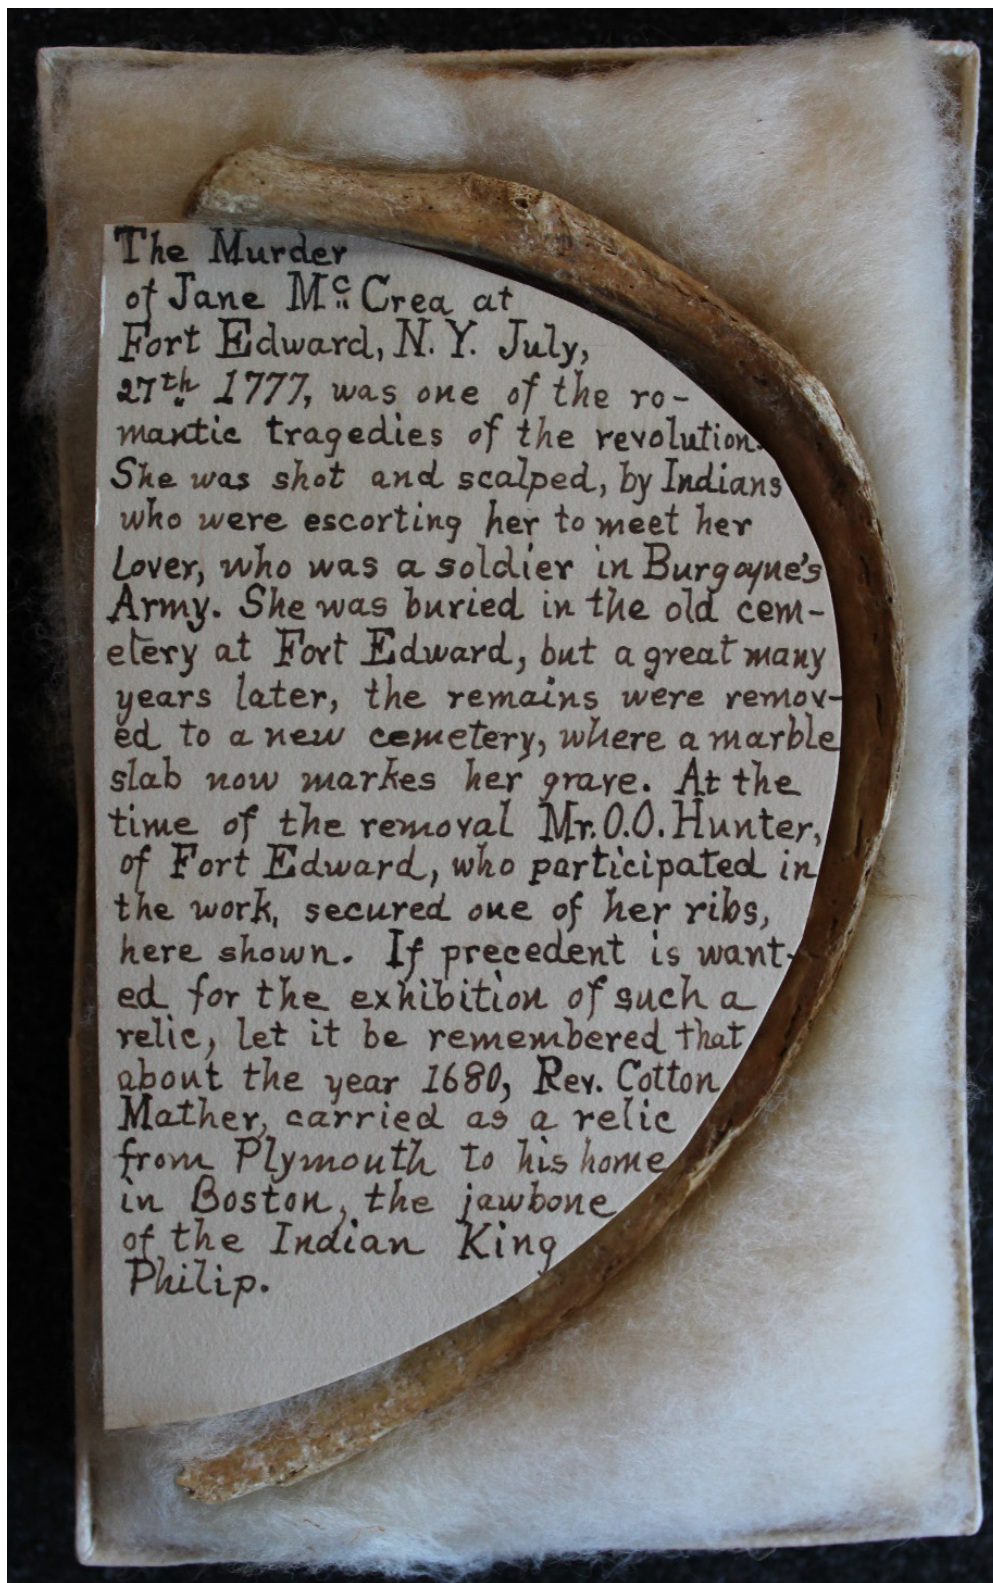 The Murder
of Jane Mc Crea at
Fort Edward, N. Y. July,
27th 1777, was one of the ro-
mantic tragedies of the revolution.
She was shot and scalped, by Indians
who were escorting her to meet her
Lover, who was a soldier in Burgoyne's
Army. She was buried in the old cem-
etery at Fort Edward, but a great many
years later, the remains were remov-
ed to a new cemetery, where a marble
slab now markes her grave. At the
time of the removal Mr. O.O. Hunter,
of Fort Edward, who participated in
the work, secured one of her ribs,
here shown. If precedent is want-
ed for the exhibition of such a
relic, let it be remembered that
about the year 1680, Rev. Cotton
Mather, carried as a relic
from Plymouth to his home
in Boston, the jawbone
of the Indian King
Philip.